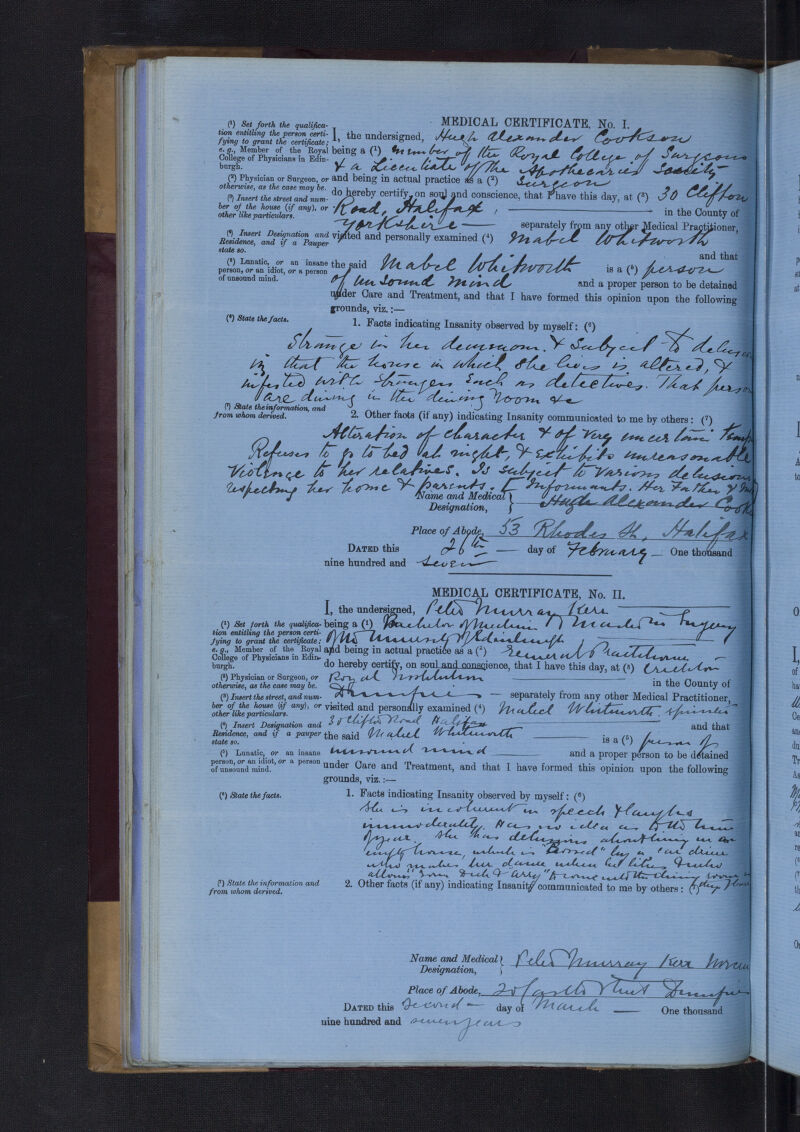 MEDICAL CERTIFICATE, No. I.
(¹) Set forth the qualifica-
tion entitling the person certi-
fying to grant the certificate;
e.g., Member of the Royal
College of Physicians in Edin-
burgh.
(²) Physician or Surgeon, or
otherwise, as the case may be.
(³) Insert the street and num-
ber of the house (if any), or
other like particulars.
(⁴) Insert Designation and
Residence, and if a Pauper
state so.
(⁵) Lunatic, or an insane
person, or an idiot, or a person
of unsound mind.
I, the undersigned, Hugh Alexander Cookson
being a (¹) member of the Royal College of Surgeons
& a Licentiate of the Apothecaries Society
and being in actual practice as a (²) Surgeon
do hereby certify, on soul and conscience, that I have this day, at (³) 30 Clifton
Road, Halifax, in the County of
Yorkshire separately from any other Medical Practitioner,
visited and personally examined (⁴) Mabel Whitworth
and that
the said Mabel Whitworth is a (⁵) person
of unsound mind and a proper person to be detained
under Care and Treatment, and that I have formed this opinion upon the following
grounds, viz.:—
(⁶) State the facts.
1. Facts indicating Insanity observed by myself: (⁶)
Strange in her demeanour & subject to
in that the house in which she lives is altered, &
infested with strangers such as detectives. That
are dining in the dining room &c
(⁷) State the information, and
from whom derived.
2. Other facts (if any) indicating Insanity communicated to me by others: (⁷)
Alteration of character & of very uncertain
Refuses to go to bed at night, & exhibits unreasonable
violence to her relatives. Is subject to various delusions
respecting her home & parents. Informants. Her Father &
Name and Medical
Designation,
Hugh Alexander
Place of Abode, 53 Rhodes St, Halifax
DATED this 26th day of February One thousand
nine hundred and seven
MEDICAL CERTIFICATE, No. II.
(¹) Set forth the qualifica-
tion entitling the person certi-
fying to grant the certificate;
e.g., Member of the Royal
College of Physicians in Edin-
burgh.
(²) Physician or Surgeon, or
otherwise, as the case may be.
(³) Insert the street, and num-
ber of the house (if any), or
other like particulars.
(⁴) Insert Designation and
Residence, and if a pauper
state so.
(⁵) Lunatic, or an insane
person, or an idiot, or a person
of unsound mind.
I, the undersigned, Peter Murray Kerr
being a (¹) Bachelor of Medicine & Master in Surgery
of the University of Edinburgh
and being in actual practice as a (²) General Practitioner
do hereby certify, on soul and conscience, that I have this day, at (³) Crichton
Royal Institution in the County of
Dumfries separately from any other Medical Practitioner,
visited and personally examined (⁴) Mabel Whitworth, spinster
30 Clifton Road Halifax and that
the said Mabel Whitworth is a (⁵) person of
unsound mind and a proper person to be detained
under Care and Treatment, and that I have formed this opinion upon the following
grounds, viz.:—
(⁶) State the facts.
1. Facts indicating Insanity observed by myself: (⁶)
She is incoherent in speech & laughs
immoderately. Has no idea as to the time
of year. She has delusions about being in an
empty house, which is "bossed" by a
who makes her dance when he likes & who
allows "Tom Dick & Arry" to come into the dining room
(⁷) State the information and
from whom derived.
2. Other facts (if any) indicating Insanity communicated to me by others: (⁷)
Name and Medical
Designation,
Peter Murray Kerr
Place of Abode, Castle Street Dumfries
DATED this Second day of March One thousand
nine hundred and seven years